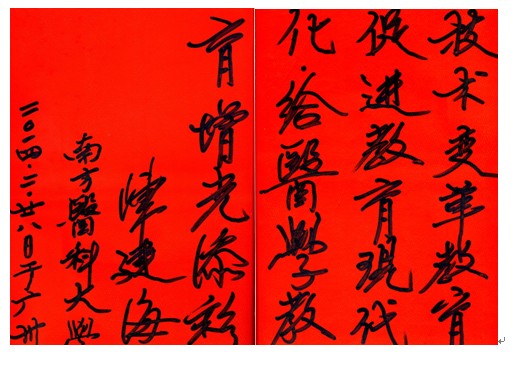 技术变革教育
促进教育現代
化·給醫學教
育增光添彩
建海
南方醫科大學
二〇一四·二·廿八日于广州